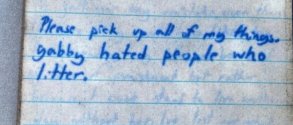 Please pick up all of my things.
gabby hated people who
litter.